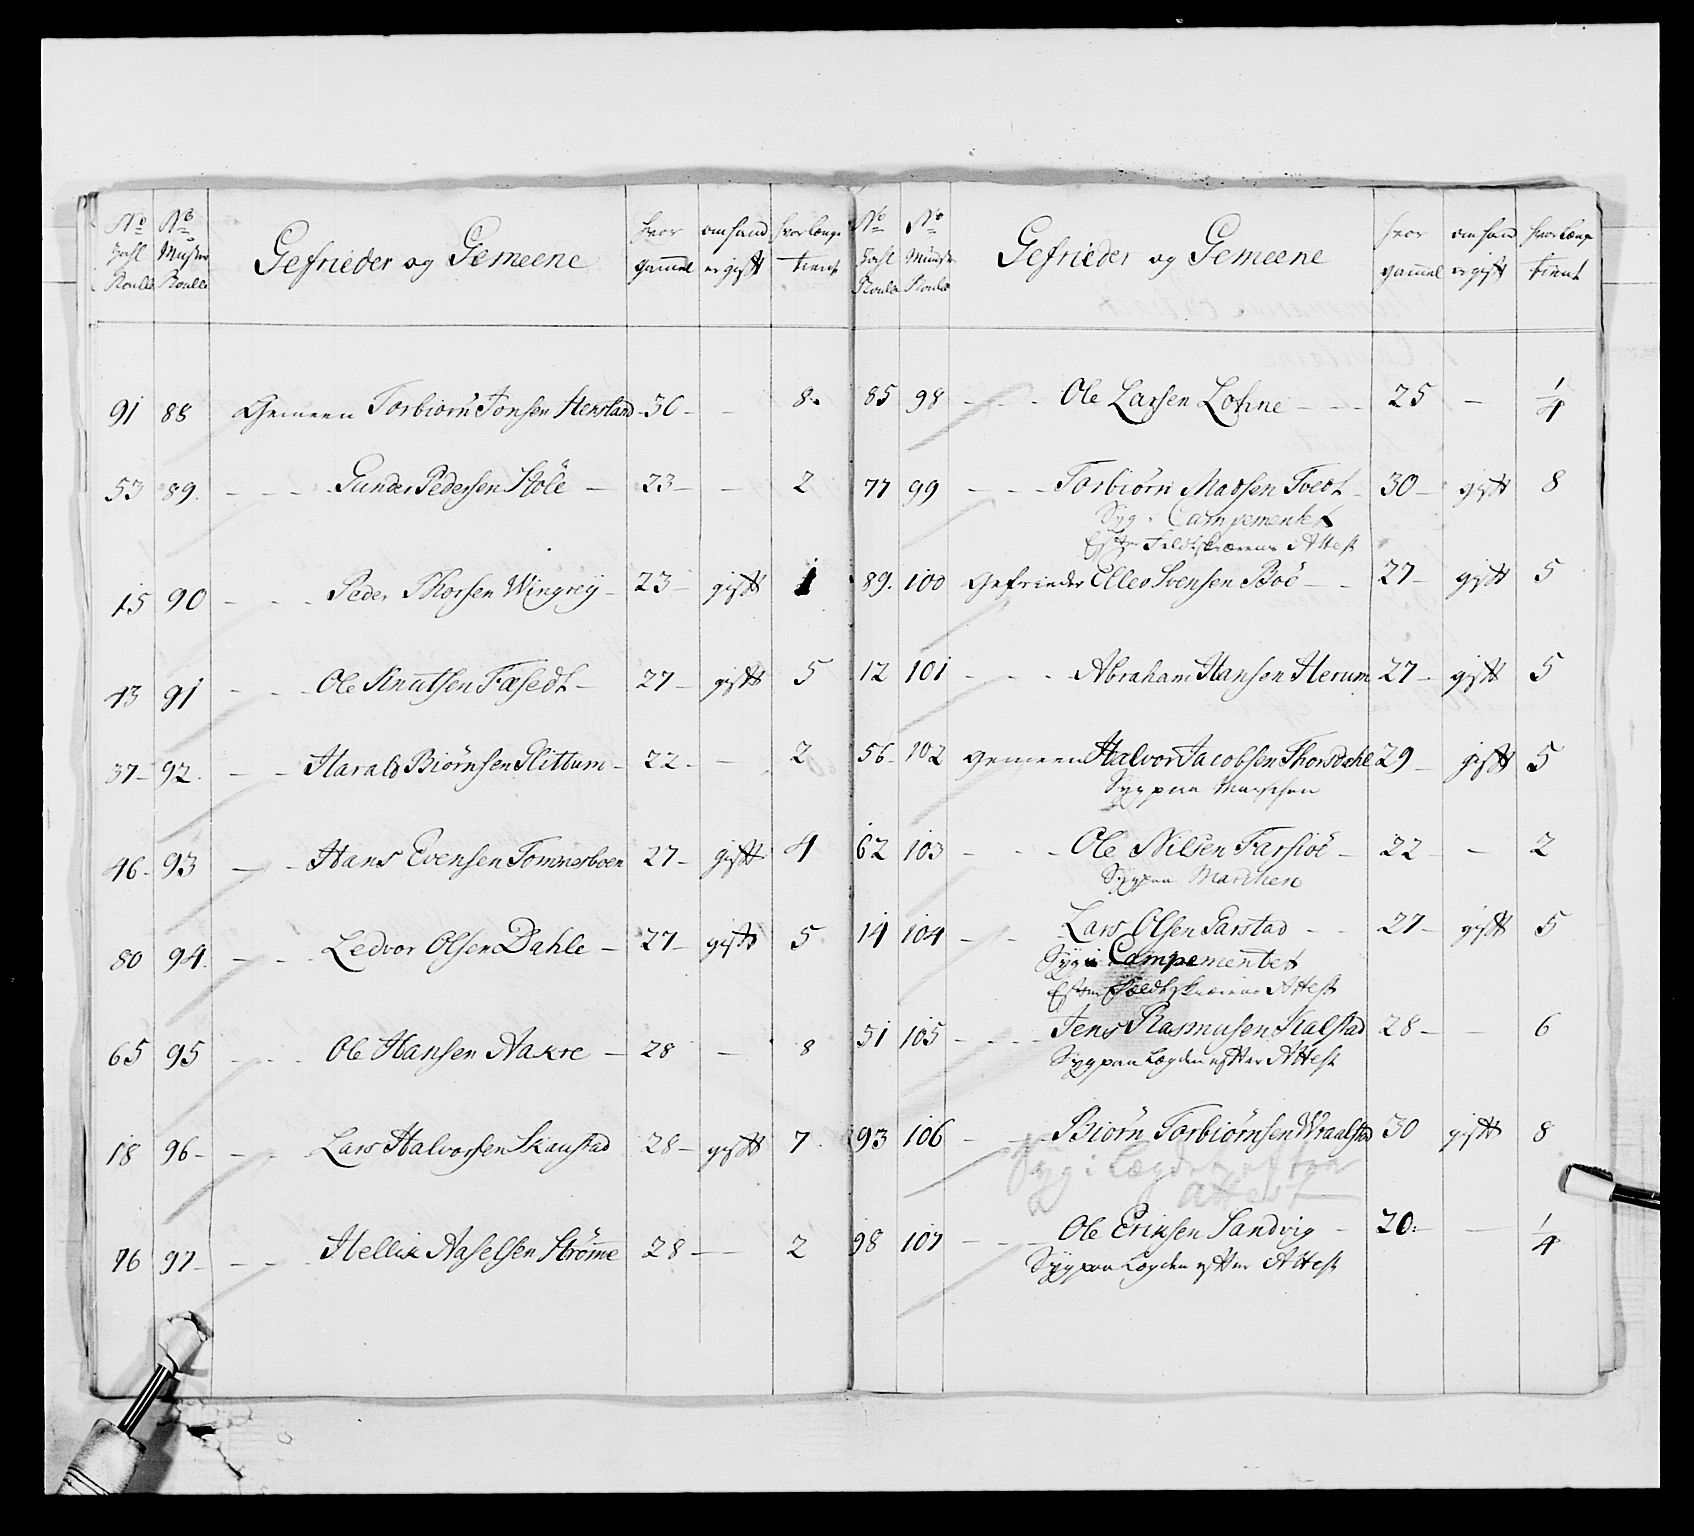 No No Gefrieder og Gemeene hvor om hand hvor længe
Zahl Mynster gammel er gift tient
Roulle Roulle
91 88 Gemeen Torbiørn Jonsen Herstad 30 - - 8.
53 89. - - - Gunder Pedersen Støle - 23 - - 2
15 90 - - - Peder Thorsen Wingreij - 23 - gift 1
43 91 - - - Ole Knutsen Fæsedt - 27 - gift 5
37 - 92. - - Harald Biørnsen Flittum - 22 - - 2
46 - 93 - - Hans Evensen Tommesboen 27 - gift 4
80 94. - - - Ledvor Olsen Dahle - 27 - gift 5
65 95 - - - Ole Hansen Aakre - 28 - 8
18 96 - - - Lars Halvorsen Skaustad 28 - gift 7.
76 97 - - - Hellik Aaselsen Strømme 28 - - 2
No No Gefrieder og Gemeene hvor om hand hvor længe
Zahl Munster gammel er gift tient
Roulle Roulle
85 98 - - - Ole Larsen Lohne - - - 25 - 1/4
77 99 - - - Torbiørn Madsen Tvedt - 30 - gift 8
Syg i Campementet
Efter Feldtskærerens Attest
89. 100 Gefrieder Ellev Svensen Boe - - 27 - gift 5
12 101 - - - Abraham Hansen Herum 27 - gift 5
56 - 102 Gemeen Halvor Jacobsen Thorsdahl 29 - gift 5
Syg paa Marschen
62 103 - - - Ole Nilsen Farsioe - 22 - 2
Syg paa Marchen
14 104 - - - Lars Olsen Parstad - - 27 - gift 5
Syg i Campementet
Efter Feldtskærerens Attest
51 105 - - - Jens Rasmusen Kalstad 28 - - 6
Syg paa Lægden efter Attest
93 106 - - Biørn Torbiørnsen Wraalstad 30 gift 8
Syg i Lægden efter
Attest
98 107 - - - Ole Eriksen Sandvig - 20 - - 1/4
Syg paa Lægden efter Attest